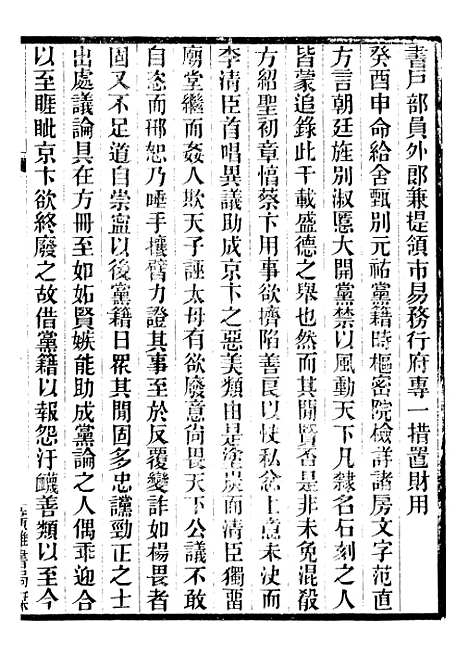 書戸部員外郎兼提領市易務行府專一措置財用
癸酉申命給舍甄別元祐黨籍時樞密院檢詳諸房文字范直
方言朝廷旌別淑慝大開黨禁以風動天下凡隸名石刻之人
皆蒙追錄此千載盛德之舉也然而其閒賢否是非未免混殽
方紹聖初章惇蔡卞用事欲擠陷善良以快私忿上意未決而
李清臣首唱異議助成京卞之惡美類由是塗炭而清臣獨畱
廟堂繼而姦人欺天子誣太母有欲廢意尚畏天下公議不敢
自恣而邢恕乃唾手攘臂力證其事至於反覆變詐如楊畏者
固又不足道自崇寧以後黨籍日眾其閒固多忠讜勁正之士
出處議論具在方冊至如妬賢嫉能助成黨論之人偶乖迎合
以至睚眦京卞欲終廢之故借黨籍以報怨汙衊善類以至今
廣雅書局栞